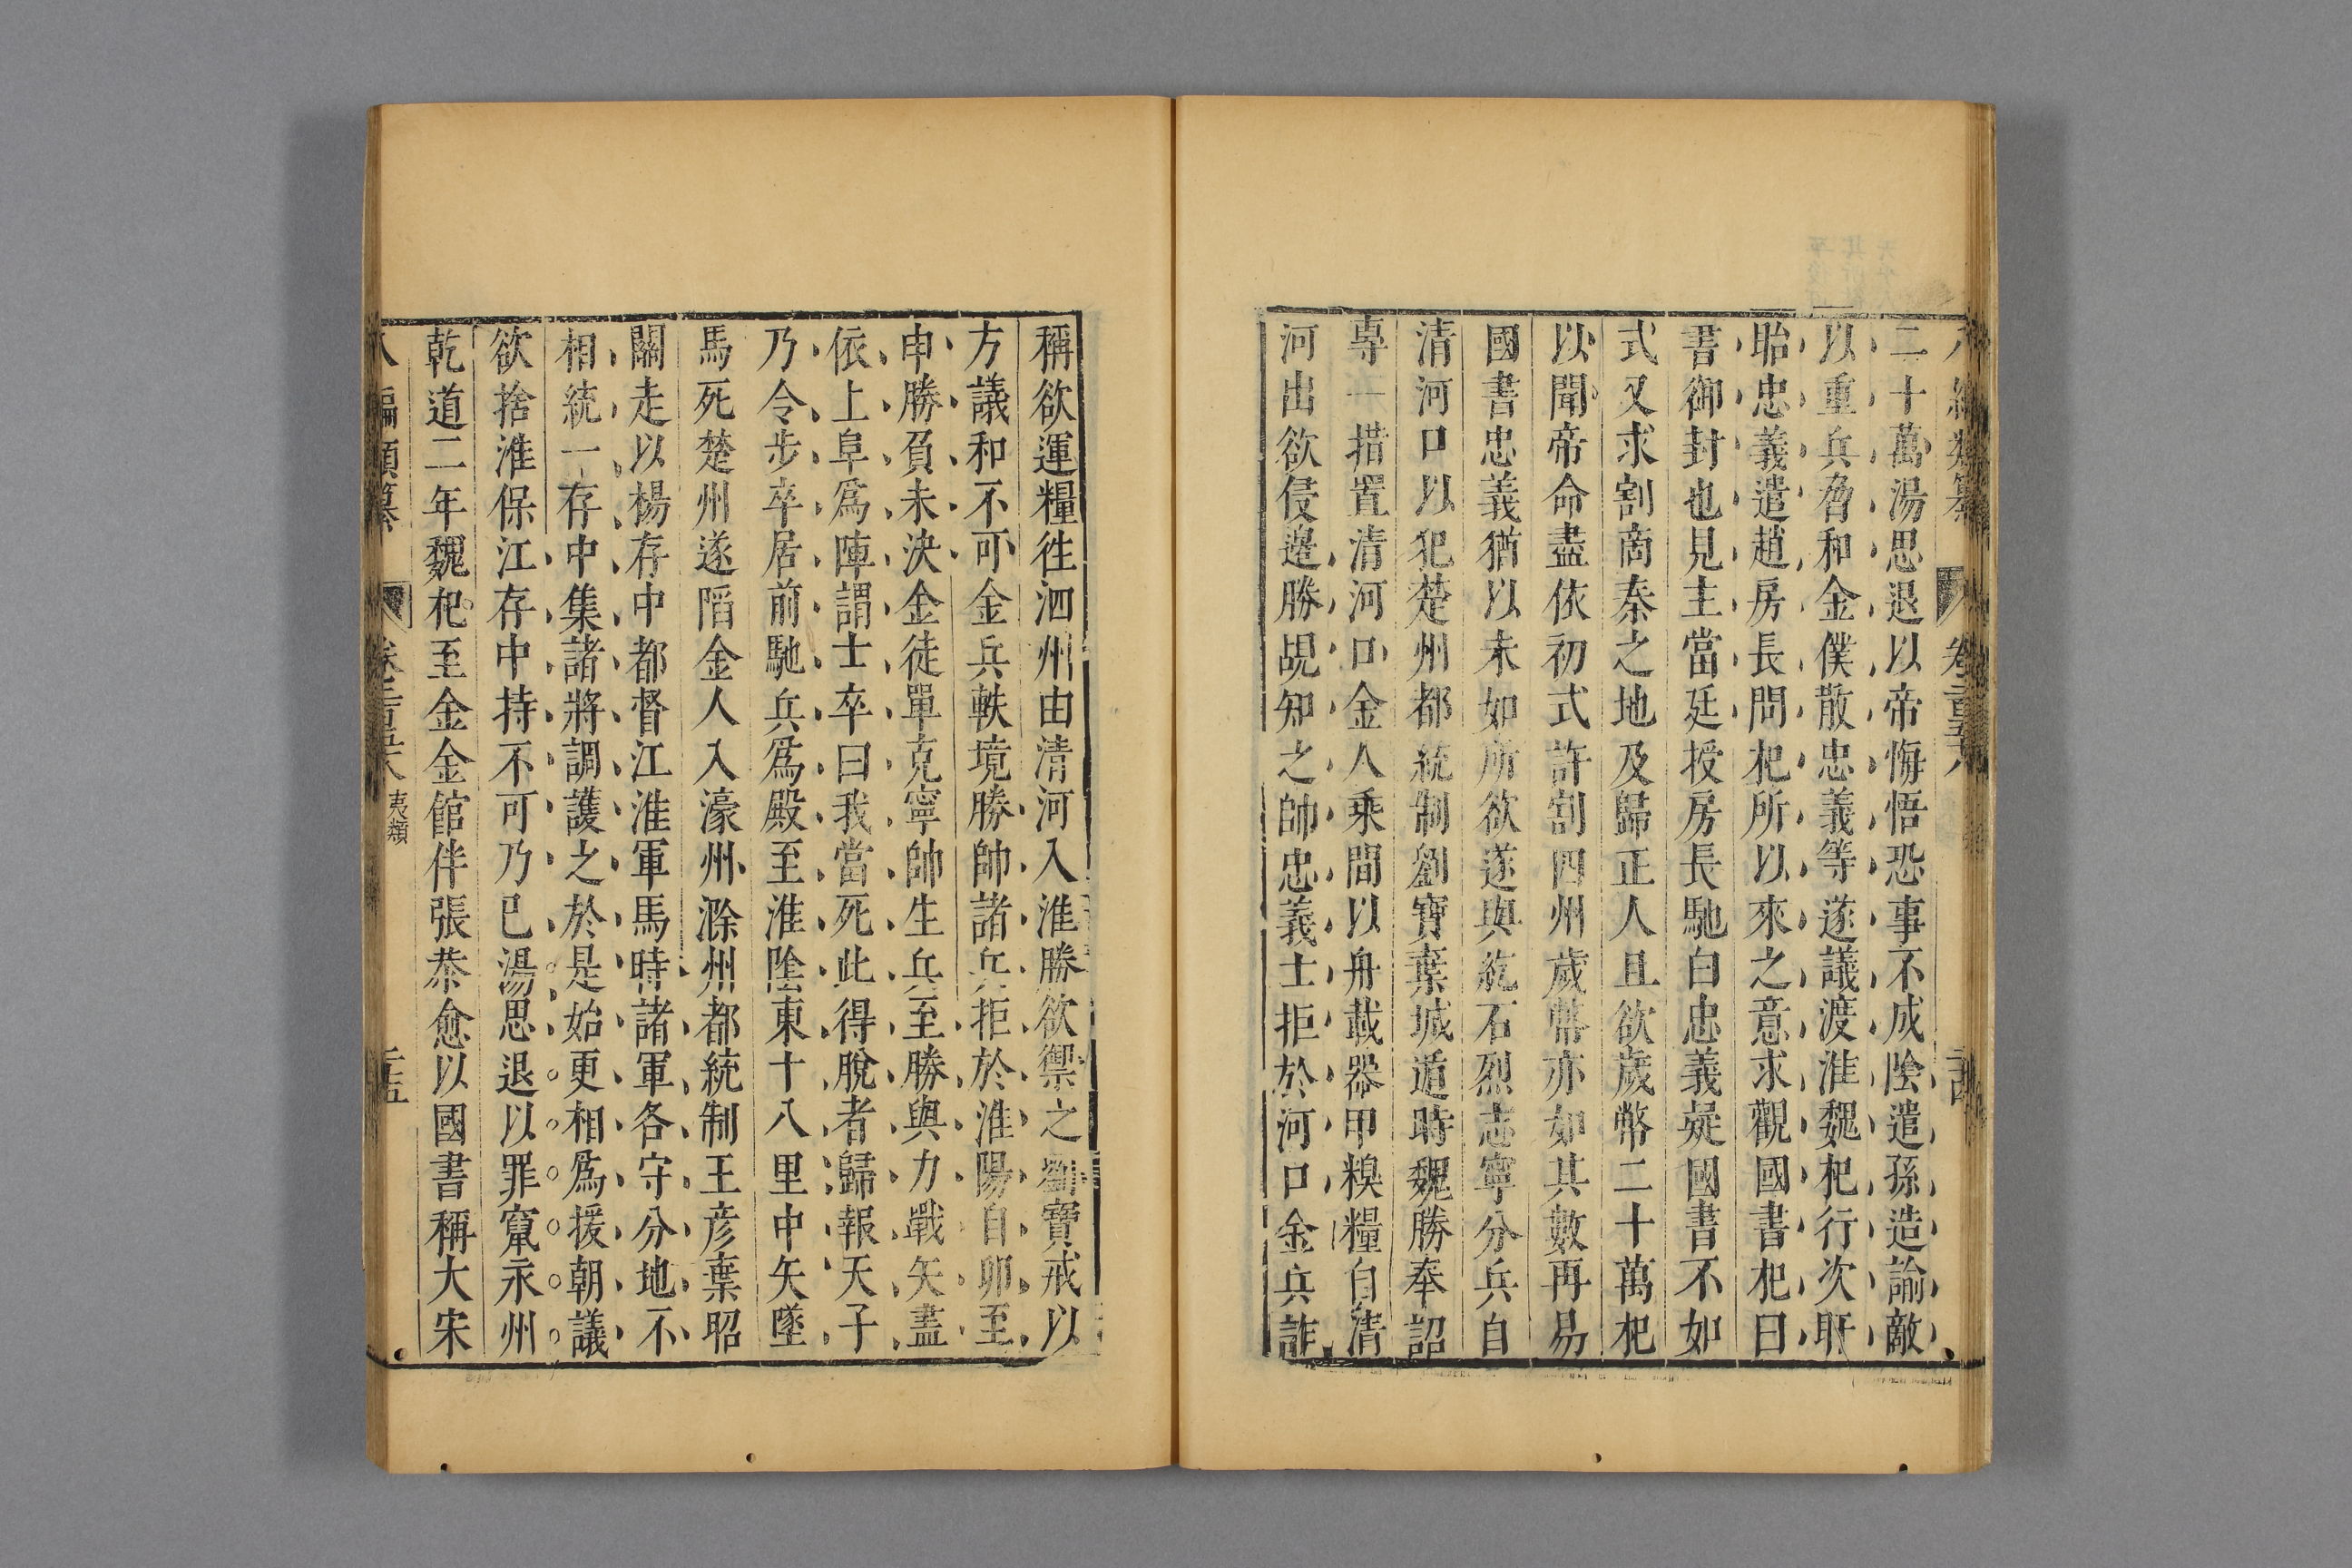 二十萬湯思退以帝悔悟恐事不成陰遣孫造諭敵
以重兵脅和金僕散忠義等遂議渡淮魏杞行次盱
眙忠義遣趙房長問杞所以來之意求觀國書杞曰
書御封也見主當廷授房長馳白忠義疑國書不如
式又求割商秦之地及歸正人且欲歲幣二十萬杞
以聞帝命盡依初式許割四州歲幣亦如其數再易
國書忠義猶以未如所欲遂與紇石烈志寧分兵自
清河口以犯楚州都統制劉寶棄城遁時魏勝奉詔
專一措置清河口金人乘間以舟載器甲糗糧自清
河出欲侵邊勝覘知之帥忠義士拒於河口金兵詐
稱欲運糧往泗州由清河入淮勝欲禦之劉寶戒以
方議和不可金兵軼境勝帥諸兵拒於淮陽自卯至
申勝負未決金徒單克寧帥生兵至勝與力戰矢盡
依上阜爲陣謂士卒曰我當死此得脫者歸報天子
乃令步卒居前馳兵爲殿至淮陰東十八里中矢墜
馬死楚州遂陷金人入濠州滁州都統制王彥棄昭
關走以楊存中都督江淮軍馬時諸軍各守分地不
相統一存中集諸將調護之於是始更相爲援朝議
欲捨淮保江存中持不可乃已湯思退以罪竄永州
乾道二年魏杞至金金館伴張恭愈以國書稱大宋
八編類纂
夷類